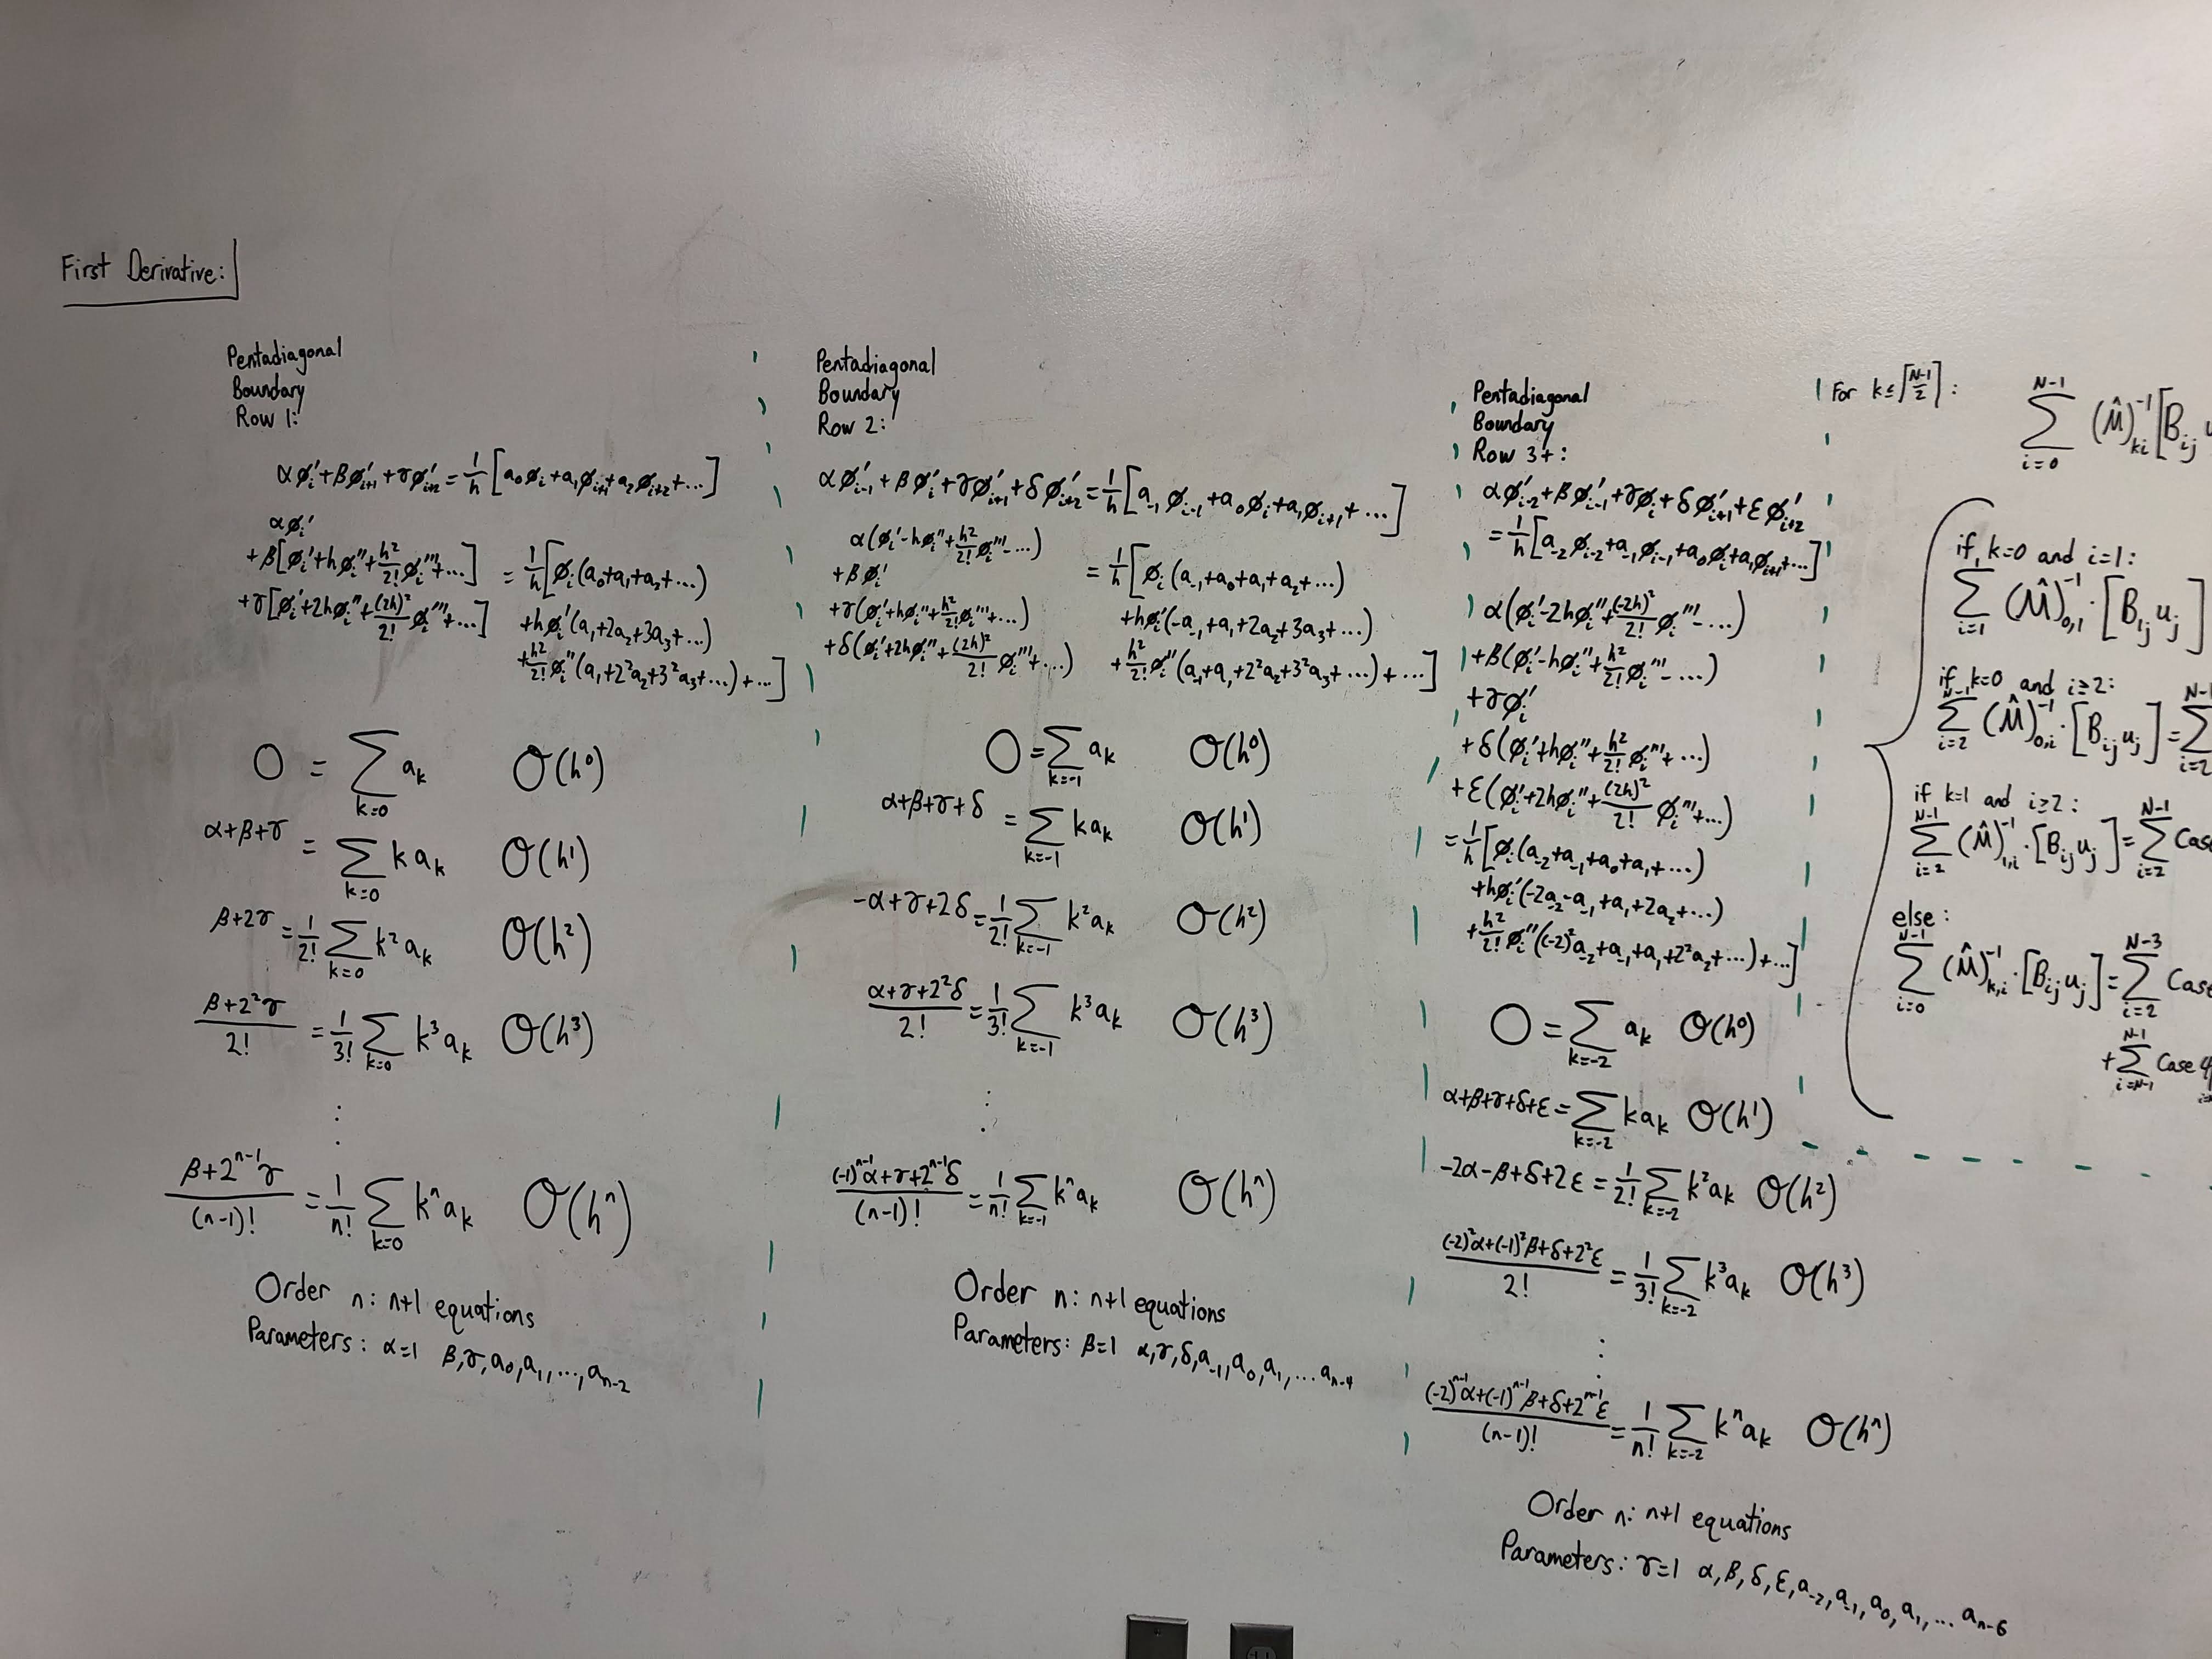 First Derivative:
Pentadiagonal
Boundary
Row 1:
αφᵢ' + βφ'ᵢ₊₁ + γφ'ᵢ₊₂ = 1/h [a₀φᵢ + a₁φᵢ₊₁ + a₂φᵢ₊₂ + ...]
αφᵢ'
+ β[φᵢ' + hφᵢ'' + h²/2! φᵢ''' + ...] = 1/h [φᵢ(a₀ + a₁ + a₂ + ...)
+ γ[φᵢ' + 2hφᵢ'' + (2h)²/2! φᵢ''' + ...] + hφᵢ'(a₁ + 2a₂ + 3a₃ + ...)
+ h²/2! φᵢ''(a₁ + 2²a₂ + 3²a₃ + ...) + ...]
0 = ∑_{k=0} aₖ O(h⁰)
α+β+γ = ∑_{k=0} k aₖ O(h¹)
β+2γ = 1/2! ∑_{k=0} k² aₖ O(h²)
(β+2²γ)/2! = 1/3! ∑_{k=0} k³ aₖ O(h³)
⋮
(β+2ⁿ⁻¹γ)/(n-1)! = 1/n! ∑_{k=0} kⁿ aₖ O(hⁿ)
Order n: n+1 equations
Parameters: α=1 β, γ, a₀, a₁, ..., aₙ₋₂
Pentadiagonal
Boundary
Row 2:
αφ'ᵢ₋₁ + βφ'ᵢ + γφ'ᵢ₊₁ + δφ'ᵢ₊₂ = 1/h [a₋₁φᵢ₋₁ + a₀φᵢ + a₁φᵢ₊₁ + ...]
α(φᵢ' - hφᵢ'' + h²/2! φᵢ''' - ...)
+ βφᵢ' = 1/h [φᵢ(a₋₁ + a₀ + a₁ + a₂ + ...)
+ γ(φᵢ' + hφᵢ'' + h²/2! φᵢ''' + ...) + hφᵢ'(-a₋₁ + a₁ + 2a₂ + 3a₃ + ...)
+ δ(φᵢ' + 2hφᵢ'' + (2h)²/2! φᵢ''' + ...) + h²/2! φᵢ''(a₋₁ + a₁ + 2²a₂ + 3²a₃ + ...) + ...]
0 = ∑_{k=-1} aₖ O(h⁰)
α+β+γ+δ = ∑_{k=-1} k aₖ O(h¹)
-α+γ+2δ = 1/2! ∑_{k=-1} k² aₖ O(h²)
(α+γ+2²δ)/2! = 1/3! ∑_{k=-1} k³ aₖ O(h³)
⋮
((-1)ⁿ⁻¹α+γ+2ⁿ⁻¹δ)/(n-1)! = 1/n! ∑_{k=-1} kⁿ aₖ O(hⁿ)
Order n: n+1 equations
Parameters: β=1 α, γ, δ, a₋₁, a₀, a₁, ... aₙ₋₄
Pentadiagonal
Boundary
Row 3+:
αφ'ᵢ₋₂ + βφ'ᵢ₋₁ + γφᵢ + δφ'ᵢ₊₁ + εφ'ᵢ₊₂
= 1/h [a₋₂φᵢ₋₂ + a₋₁φᵢ₋₁ + a₀φᵢ + a₁φᵢ₊₁ + ...]
α(φᵢ' - 2hφᵢ'' + (-2h)²/2! φᵢ''' - ...)
+ β(φᵢ' - hφᵢ'' + h²/2! φᵢ''' - ...)
+ γφᵢ'
+ δ(φᵢ' + hφᵢ'' + h²/2! φᵢ''' + ...)
+ ε(φᵢ' + 2hφᵢ'' + (2h)²/2! φᵢ''' + ...)
= 1/h [φᵢ(a₋₂ + a₋₁ + a₀ + a₁ + ...)
+ hφᵢ'(-2a₋₂ - a₋₁ + a₁ + 2a₂ + ...)
+ h²/2! φᵢ''((-2)²a₋₂ + a₋₁ + a₁ + 2²a₂ + ...) + ...]
0 = ∑_{k=-2} aₖ O(h⁰)
α+β+γ+δ+ε = ∑_{k=-2} k aₖ O(h¹)
-2α-β+δ+2ε = 1/2! ∑_{k=-2} k² aₖ O(h²)
((-2)²α+(-1)²β+δ+2²ε)/2! = 1/3! ∑_{k=-2} k³ aₖ O(h³)
⋮
((-2)ⁿ⁻¹α+(-1)ⁿ⁻¹β+δ+2ⁿ⁻¹ε)/(n-1)! = 1/n! ∑_{k=-2} kⁿ aₖ O(hⁿ)
Order n: n+1 equations
Parameters: γ=1 α, β, δ, ε, a₋₂, a₋₁, a₀, a₁, ... aₙ₋₆
For k ≤ ⌈(N-1)/2⌉: ∑_{i=0}^{N-1} (M̂)⁻¹ₖᵢ [Bᵢⱼ u
if k=0 and i=1:
∑_{i=1} (M̂)⁻¹₀,₁ · [B₁ⱼ uⱼ]
if k=0 and i≥2:
∑_{i=2}^{N-1} (M̂)⁻¹₀,ᵢ · [Bᵢⱼ uⱼ] = ∑_{i=2}^{N-1}
if k=1 and i≥2:
∑_{i=2}^{N-1} (M̂)⁻¹₁,ᵢ · [Bᵢⱼ uⱼ] = ∑_{i=2}^{N-1} Case
else:
∑_{i=0}^{N-1} (M̂)⁻¹ₖ,ᵢ · [Bᵢⱼ uⱼ] = ∑_{i=2}^{N-3} Case
+ ∑_{i=N-1}^{N-1} Case 4